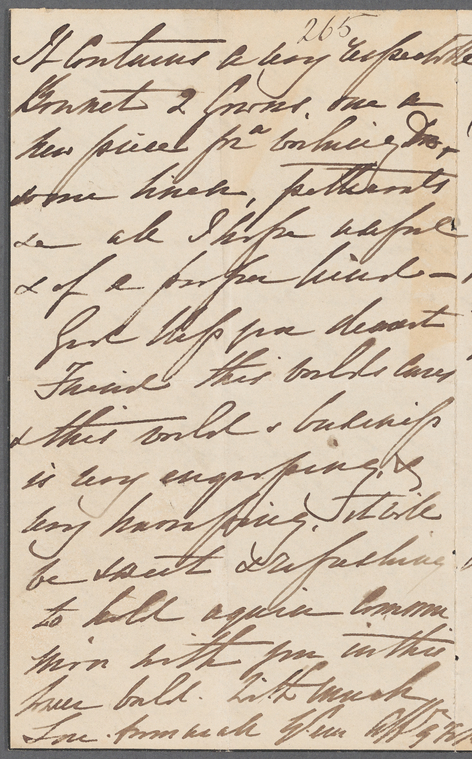 265
It contains a very respectable
Bonnet 2 Gowns, one a
new piece for a working Do,
some linen, petticoats
&c all I hope useful
& of a proper kind —
God bless you dearest
Friend this worlds cares
& this world s business
is very engrossing, &
very harrassing, It will
be sweet & refreshing
to hold again commu
nion with you in this
lower world. With much
Love remain